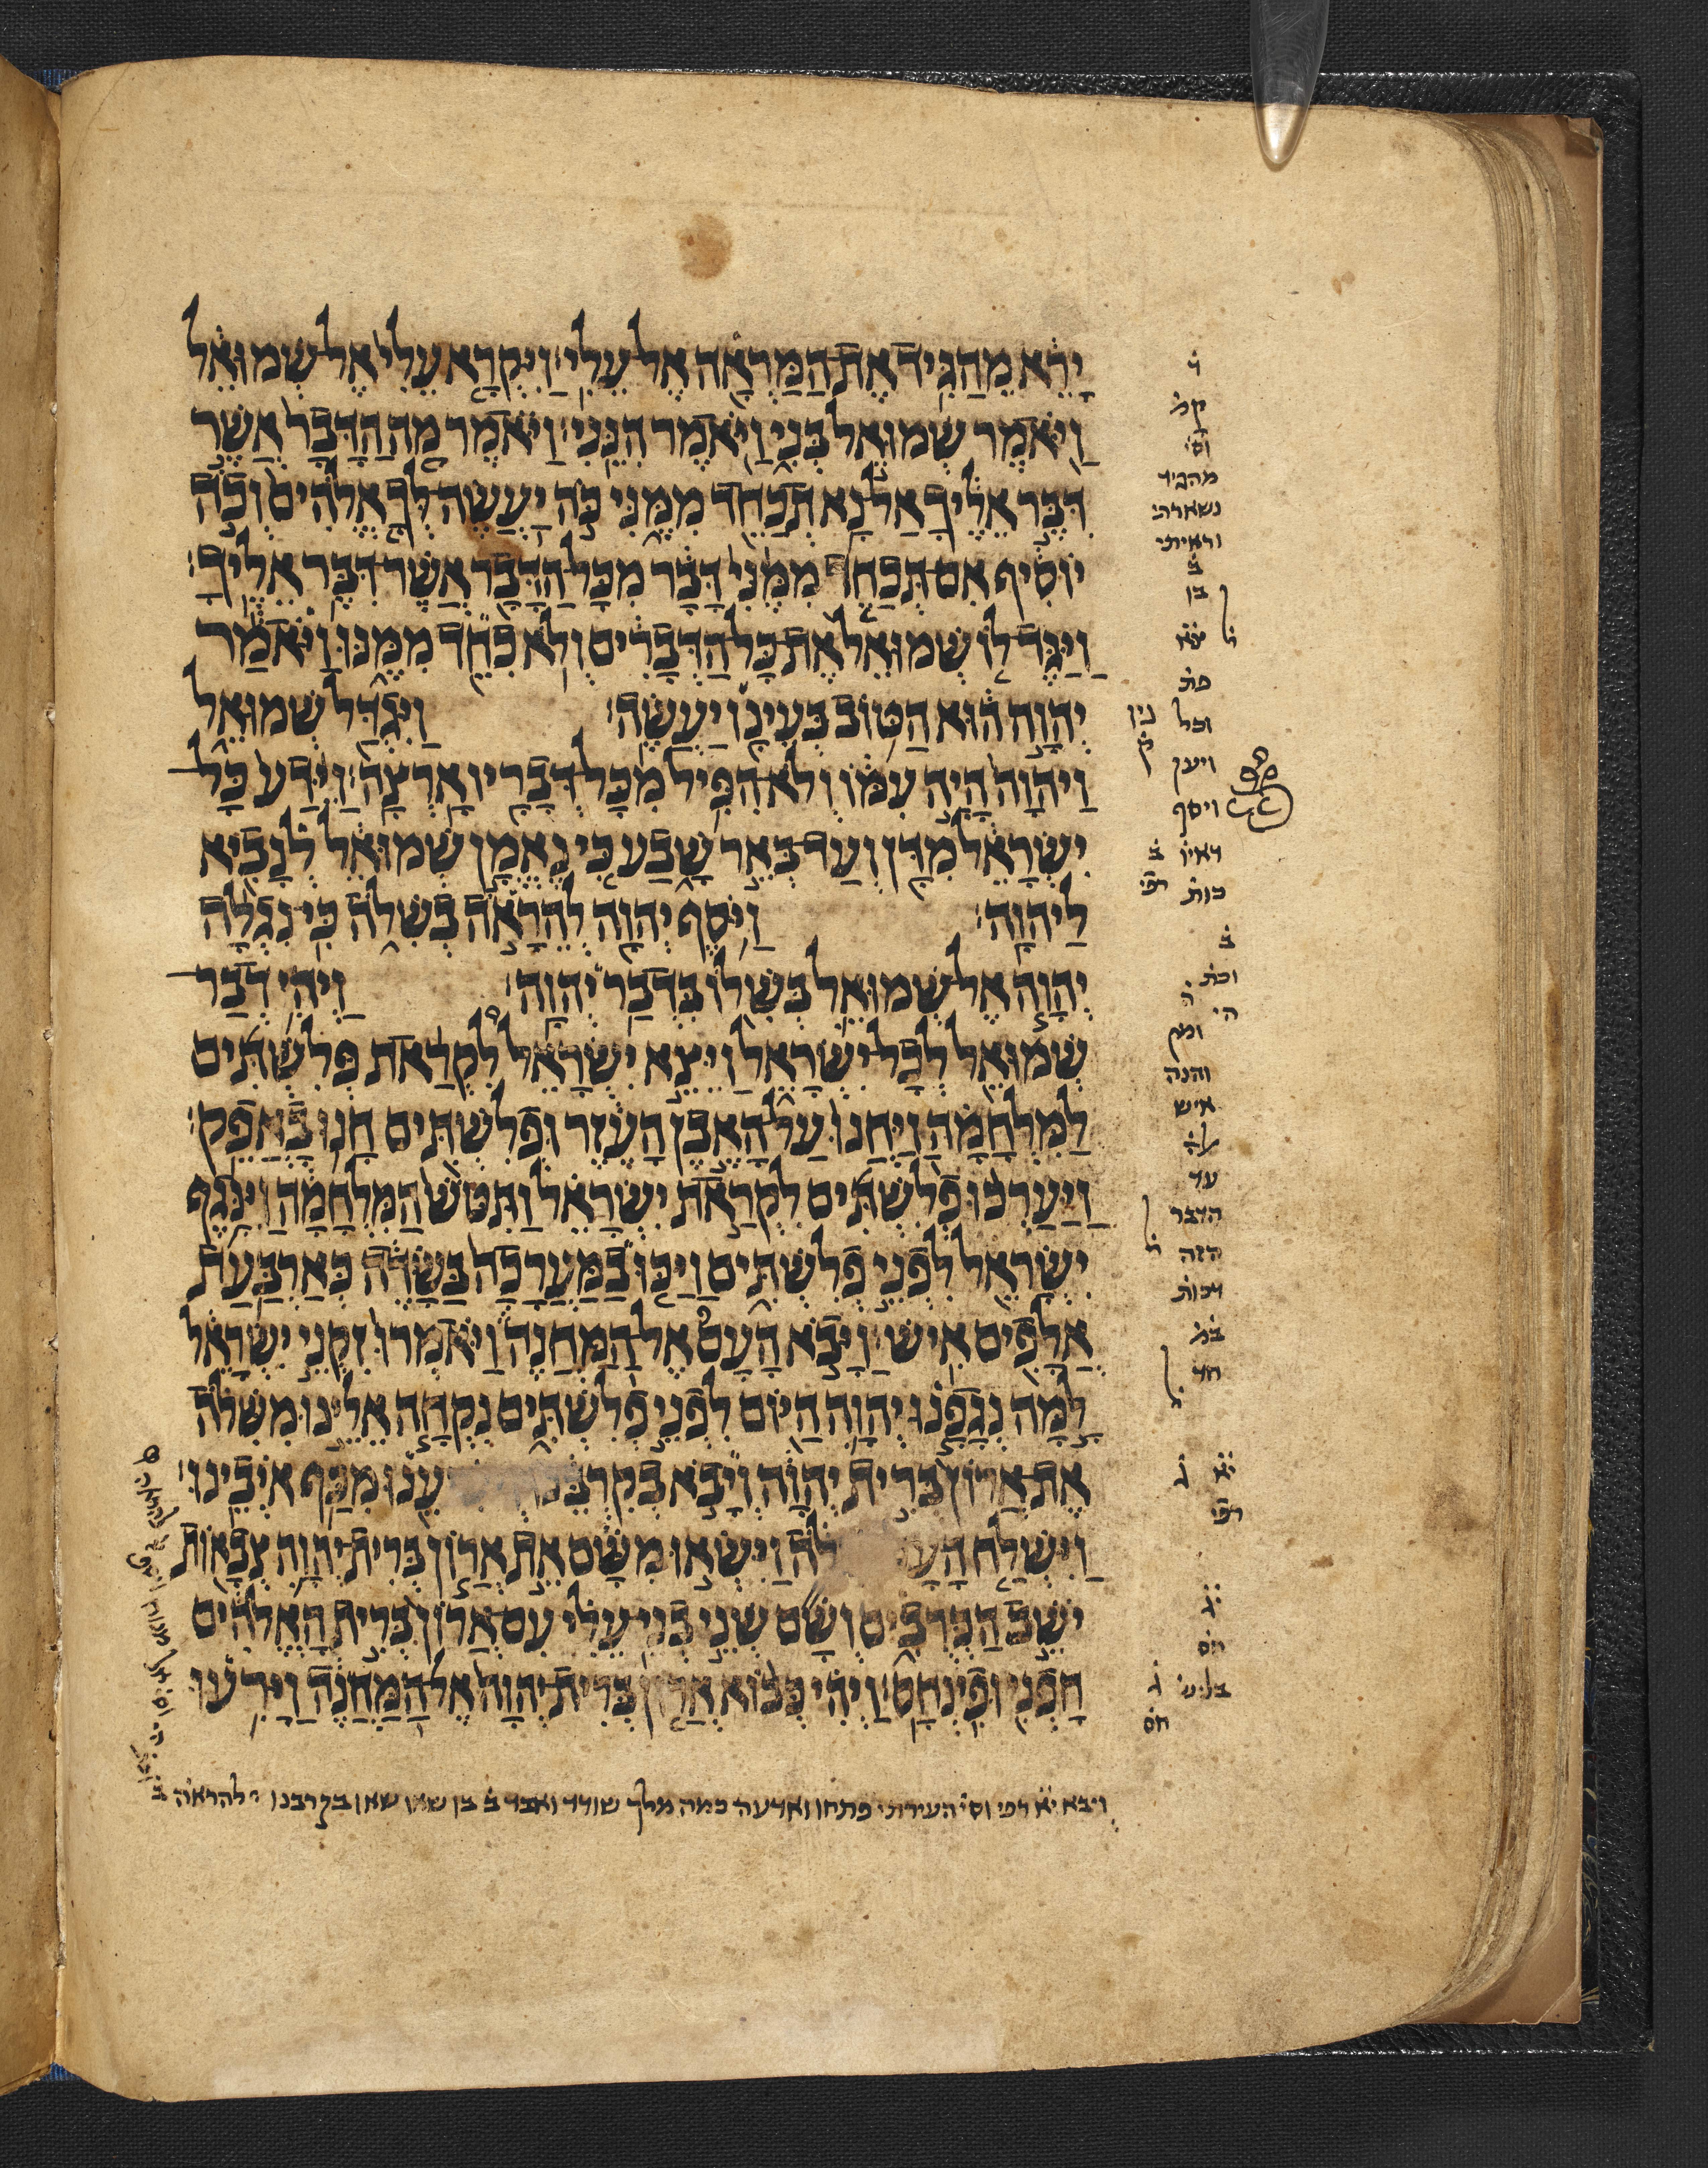 יָרֵא מֵהַגִּיד אֶת הַמַּרְאָה אֶל עֵלִי׃ וַיִּקְרָא עֵלִי אֶל שְׁמוּאֵל
וַיֹּאמֶר שְׁמוּאֵל בְּנִי וַיֹּאמֶר הִנֵּנִי׃ וַיֹּאמֶר מָה הַדָּבָר אֲשֶׁר
דִּבֶּר אֵלֶיךָ אַל נָא תְכַחֵד מִמֶּנִּי כֹּה יַעֲשֶׂה לְּךָ אֱלֹהִים וְכֹה
יוֹסִיף אִם תְּכַחֵד מִמֶּנִּי דָּבָר מִכָּל הַדָּבָר אֲשֶׁר דִּבֶּר אֵלֶיךָ׃
וַיַּגֶּד לוֹ שְׁמוּאֵל אֶת כָּל הַדְּבָרִים וְלֹא כִחֵד מִמֶּנּוּ וַיֹּאמַר
יְהוָה הוּא הַטּוֹב בְּעֵינָו יַעֲשֶׂה׃ וַיִּגְדַּל שְׁמוּאֵל
וַיהוָה הָיָה עִמּוֹ וְלֹא הִפִּיל מִכָּל דְּבָרָיו אָרְצָה׃ וַיֵּדַע כָּל
יִשְׂרָאֵל מִדָּן וְעַד בְּאֵר שָׁבַע כִּי נֶאֱמָן שְׁמוּאֵל לְנָבִיא
לַיהוָה׃ וַיֹּסֶף יְהוָה לְהֵרָאֹה בְשִׁלֹה כִּי נִגְלָה
יְהוָה אֶל שְׁמוּאֵל בְּשִׁלוֹ בִּדְבַר יְהוָה׃ וַיְהִי דְבַר
שְׁמוּאֵל לְכָל יִשְׂרָאֵל וַיֵּצֵא יִשְׂרָאֵל לִקְרַאת פְּלִשְׁתִּים
לַמִּלְחָמָה וַיַּחֲנוּ עַל הָאֶבֶן הָעֵזֶר וּפְלִשְׁתִּים חָנוּ בַאֲפֵק׃
וַיַּעַרְכוּ פְלִשְׁתִּים לִקְרַאת יִשְׂרָאֵל וַתִּטֹּשׁ הַמִּלְחָמָה וַיִּנָּגֶף
יִשְׂרָאֵל לִפְנֵי פְלִשְׁתִּים וַיַּכּוּ בַמַּעֲרָכָה בַּשָּׂדֶה כְּאַרְבַּעַת
אֲלָפִים אִישׁ׃ וַיָּבֹא הָעָם אֶל הַמַּחֲנֶה וַיֹּאמְרוּ זִקְנֵי יִשְׂרָאֵל
לָמָּה נְגָפָנוּ יְהוָה הַיּוֹם לִפְנֵי פְלִשְׁתִּים נִקְחָה אֵלֵינוּ מִשִּׁלֹה
אֶת אֲרוֹן בְּרִית יְהוָה וְיָבֹא בְקִרְבֵּנוּ עֵנוּ מִכַּף אֹיְבֵינוּ׃
וַיִּשְׁלַח הָעָ לֹה וַיִּשְׂאוּ מִשָּׁם אֵת אֲרוֹן בְּרִית יְהוָה צְבָאוֹת
יֹשֵׁב הַכְּרֻבִים וְשָׁם שְׁנֵי בְנֵי עֵלִי עִם אֲרוֹן בְּרִית הָאֱלֹהִים
חָפְנִי וּפִינְחָס׃ וַיְהִי כְּבוֹא אֲרוֹן בְּרִית יְהוָה אֶל הַמַּחֲנֶה וַיָּרִעוּ
קמ
וסי
מהגיד
נשארתי
וראיתי
ב
בן
פת
וכל
ויען
ויסף
כות
ב
והנה
איש
עד
הדבר
הזה
רכות
ויבא יא רפי וסי העירתי פתחו וארעה כמה מלך שודד ואבד ב בן שאו שאון בקרבנו להראה ב